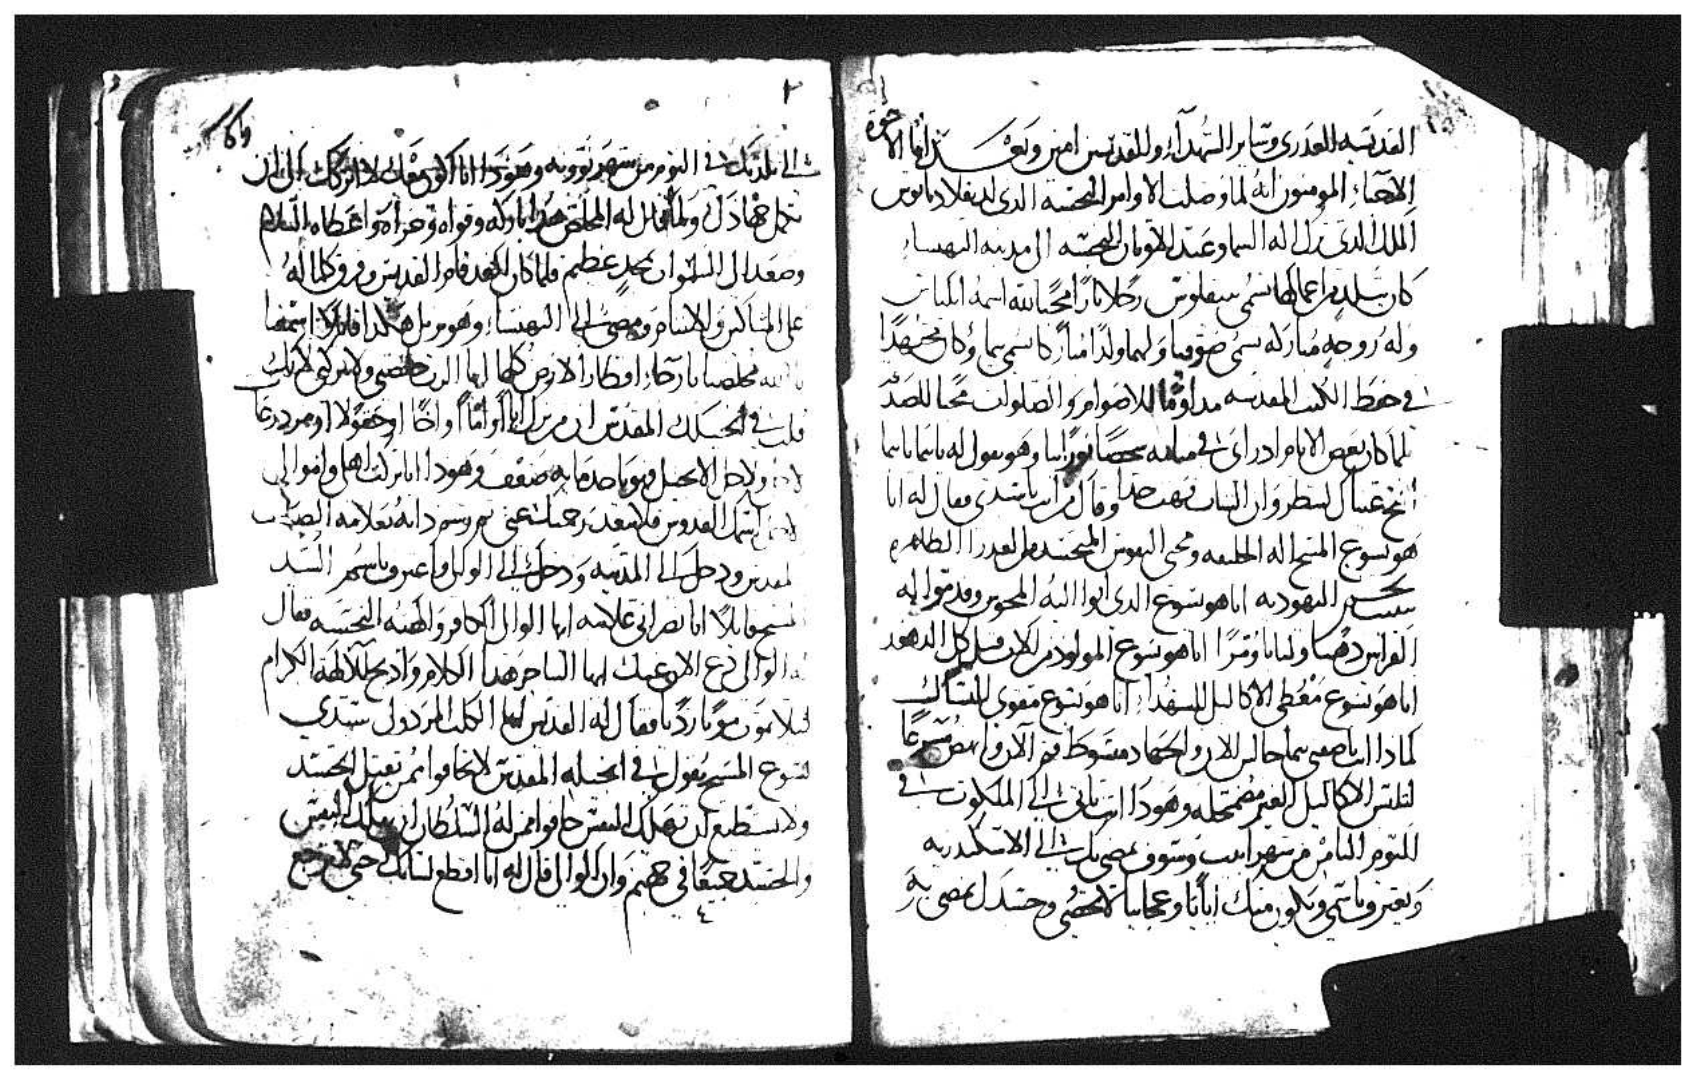 القديسه العدرى وساير الشهدآء وللقديسين امين وبعد ايها الاخوة
الاحباء المومنون انه لما وصلت الاوامر النجسه الدى لديقلاديانوس
الملك الدى ترك اله السما وعبد الاوتان النجسه الى مدينه البهنساء
كان ببلد من اعمالها تسمى رجلا بارًا محبا لله اسمه
وله زوجه مباركه تسمى صوفيا ولهما ولدًا مباركا تسمى بيما وكان مجتهدًا
فى حفظ الكتب المقدسه مداومًا للاصوام والصلوات محبا للصدقه
فلما كان بعض الايام اد راى فى منامه شخصًا نورانيا وهو يقول له يا بيما يا بيما
افتح عيناك لتنظر وان الشاب بهت جدا وقال من انت يا سيدى فقال له انا
هو يسوع المسيح اله الخليقه ومحيى النفوس المتجسد من العدرا الطاهره
اليهوديه انا هو يسوع الدى اتوا اليه المجوس وقدموا له
القرابين دهبا ولبانا ومرًا انا هو يسوع المولود من الاب قبل كل الدهور
انا هو يسوع معطى الاكاليل للشهدآ انا هو يسوع مقوى النساك
لمادا انت يا صفيى بيما جالس الان والجهاد مبسوط قم الآن وانهض مسرعًا
لتلبس الاكاليل الغير مضمحله وهودا انت تاتى الى الملكوت فى
اليوم التامن من شهر ابيب وسوف يمضى بك الى الاسكندريه
وتعترف باسمى ويكون منك اياتًا وعجايبا لا تحصى وحينيد يمضى بك
الى بلدتك فى اليوم من شهر بوونه وهودا انا اكون معك لا اتركك الى ان
تكمل جهادك ولما قال له المخلص هدا باركه وقواه واعطاه السلام
وصعد الى السموات بمجد عظيم فلما كان الغد قام القديس وفرق كلما له
على المساكين والايتام ومضى الى البهنساء وهو يرتل هكدا قايلًا استمعنا
يا الله مخلصنا يا رجاء اقطار الارض كلها ايها الرب خلصنى ولا تتركنى لانك
قلت فى انجيلك المقدس ان من ترك ابًا او امًا او اخًا او حقولا او مزدرعا
لاجلى ولاجل الانجيل فهو ياخد مايه ضعف وهودا انا تركت اهلى واموالى
لاجل اسمك القدوس فلا تبعد رحمتك عنى تم رسم داته بعلامه الصليب
المقدس ودخل الى المدينه ودخل الى الوالى واعترف باسم السيد
المسيح قايلًا انا نصرانى علانيه ايها الوالى الكافر والهته النجسه فقال
له الوالى دع الان عنك ايها الساحر هدا الكلام وادبح للالهة الكرام
ليلا تموت موتا رديا فقال له القديس ايها الكلب المردول سيدى
يسوع المسيح يقول فى انجيله المقدس لا تخافوا ممن يقتل الجسد
ولا يستطيع ان يهلك النفس خافوا ممن له السلطان ان يهلك النفس
والجسد جميعًا فى جهنم وان الوالى قال له انا اقطع لسانك حتى لا ترجع